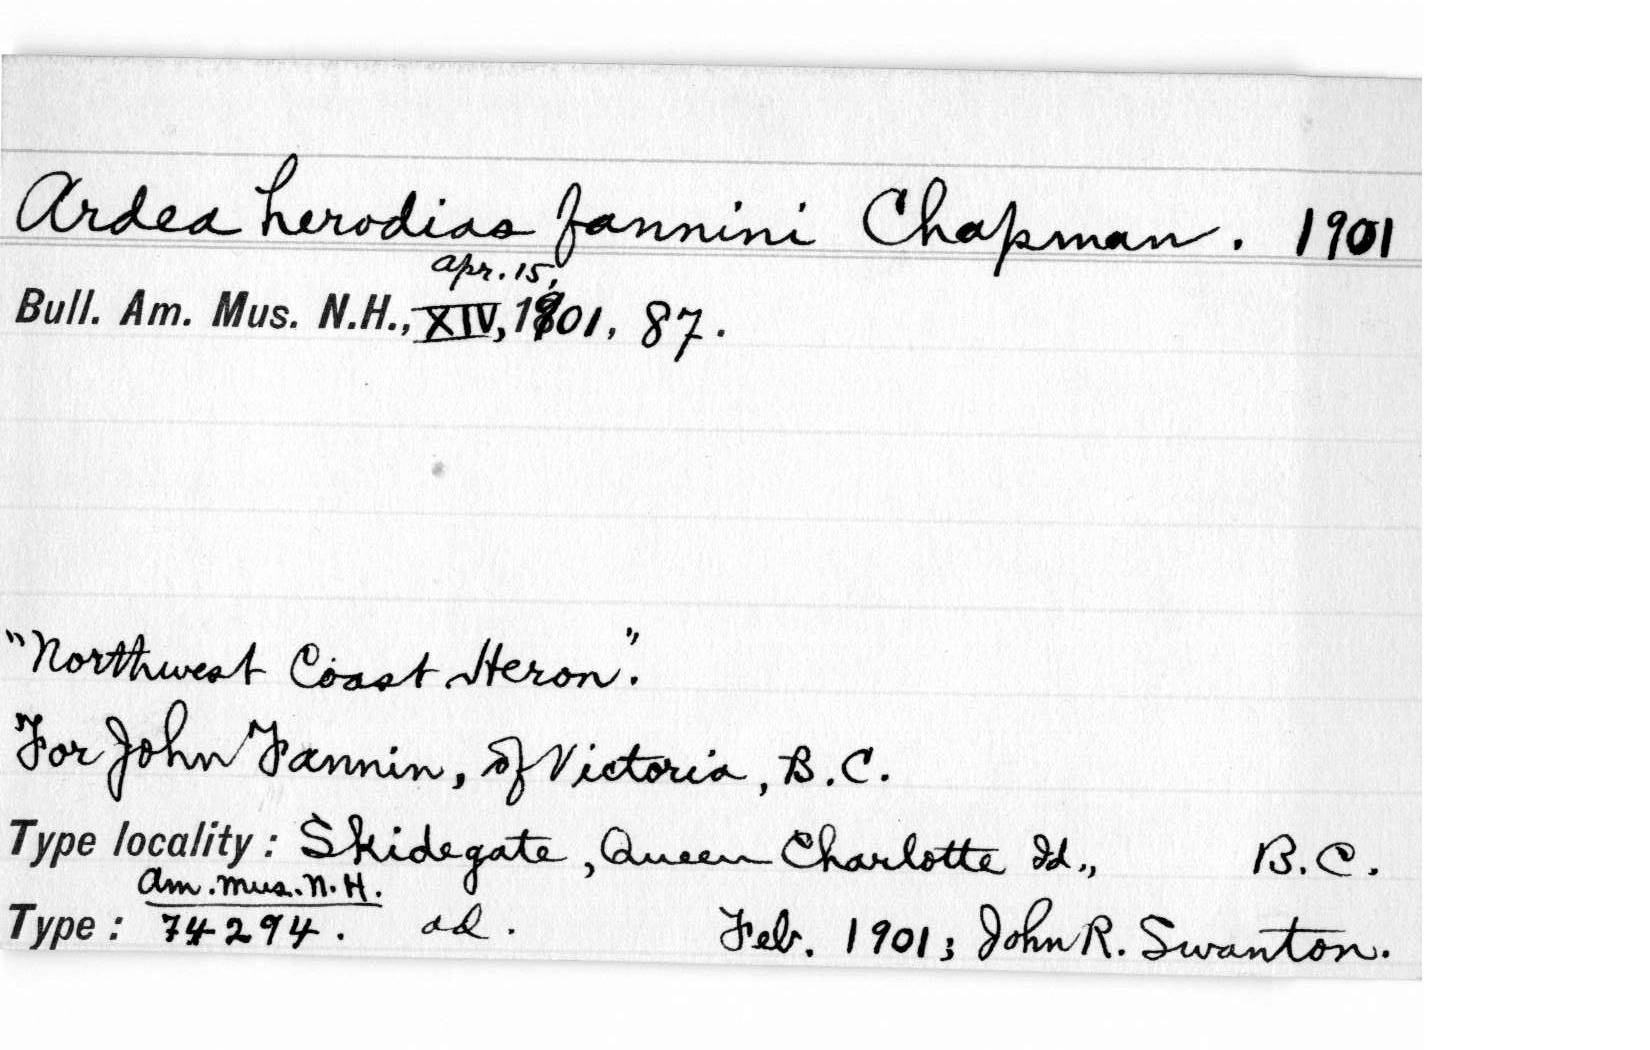 Ardea herodias fannini Chapman. 1901
Apr. 15,
Bull. Am. Mus. N.H., XIV, 1901, 87.
"Northwest Coast Heron".
For John Fannin, of Victoria, B.C.
Type locality: Skidegate, Queen Charlotte Id., B.C.
Am. Mus. N. H.
Type: 74294. ad. Feb. 1901; John R. Swanton.